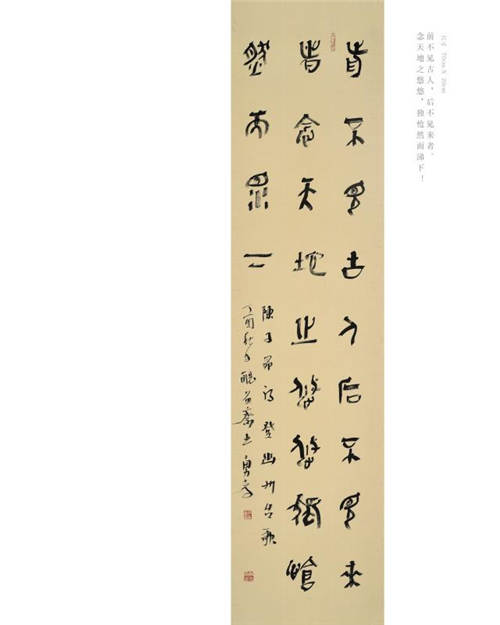 前不见古人，后不见来者。
念天地之悠悠，独怆然而涕下！
前不見古人后不見來
者念天地之悠悠獨愴
然而涕下
陳子昂詩登幽州台歌
丁酉秋月